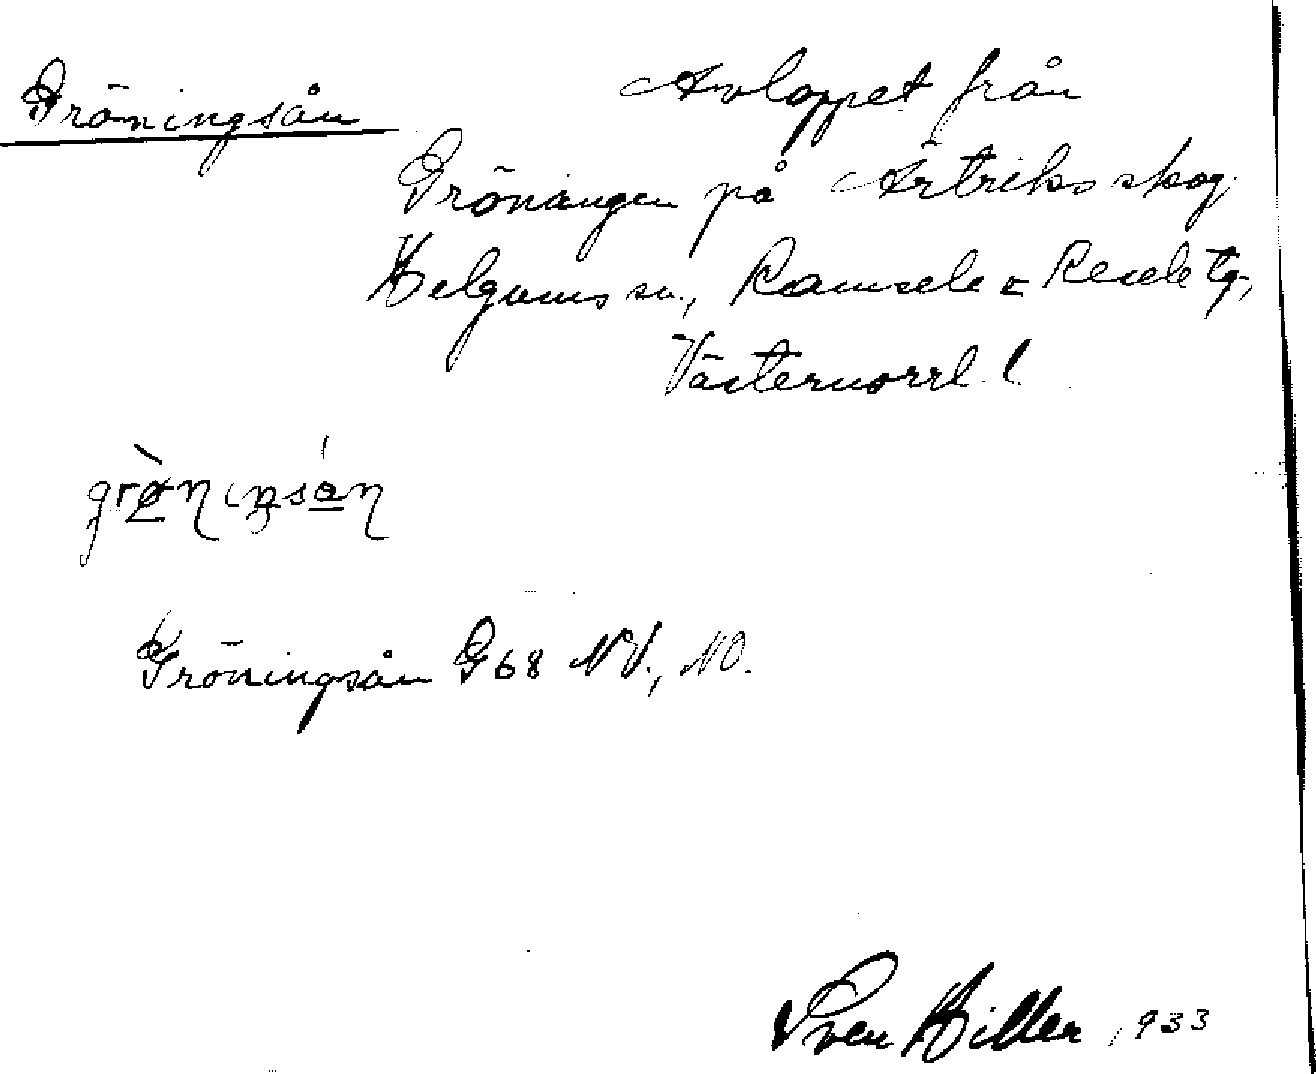 Gröningsån
Avloppet från
Gröningen på Ärtriks skog
Helgums sn., Ramsele o Resele tg.,
Västernorrl. l.
grø̀niŋsån
Gröningsån G68 NV., NO.
Sven Hiller 1933